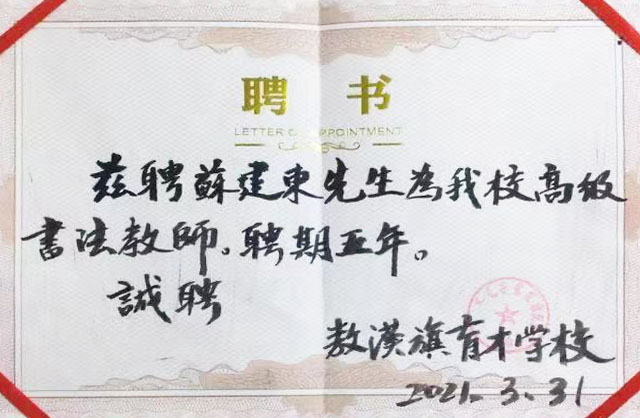 聘书
LETTER OF APPOINTMENT
兹聘蘇建東先生為我校高级
書法教師。聘期五年。
誠聘
敖漢旗育才学校
2021.3.31